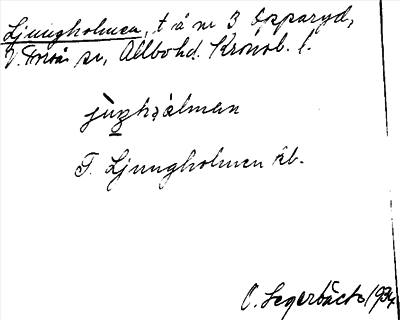 Ljungholmen, t å nr 3 Öpparyd,
V. Torsås sn, Allbo hd. Kronob. l.
jùŋhɔ̀lmən
T. Ljungholmen kb.
O. Segerbäck 1934